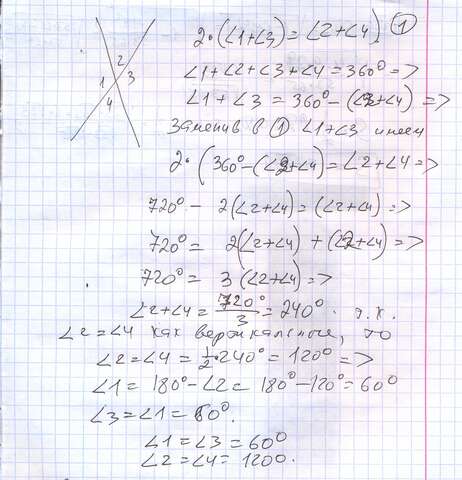 2·(∠1+∠3)=∠2+∠4) ①
∠1+∠2+∠3+∠4=360°=>
∠1+∠3=360°-(∠2+∠4)=>
Заменив в ① ∠1+∠3 имеем
2·(360°-(∠2+∠4)=∠2+∠4=>
720°-2(∠2+∠4)=(∠2+∠4)=>
720°=2(∠2+∠4)+(∠2+∠4)=>
720°=3(∠2+∠4)=>
∠2+∠4=720°/3=240°. т.к.
∠2=∠4 как вертикальные, то
∠2=∠4=1/2·240°=120°=>
∠1=180°-∠2=180°-120°=60°
∠3=∠1=60°.
∠1=∠3=60°
∠2=∠4=120.
2
1 3
4